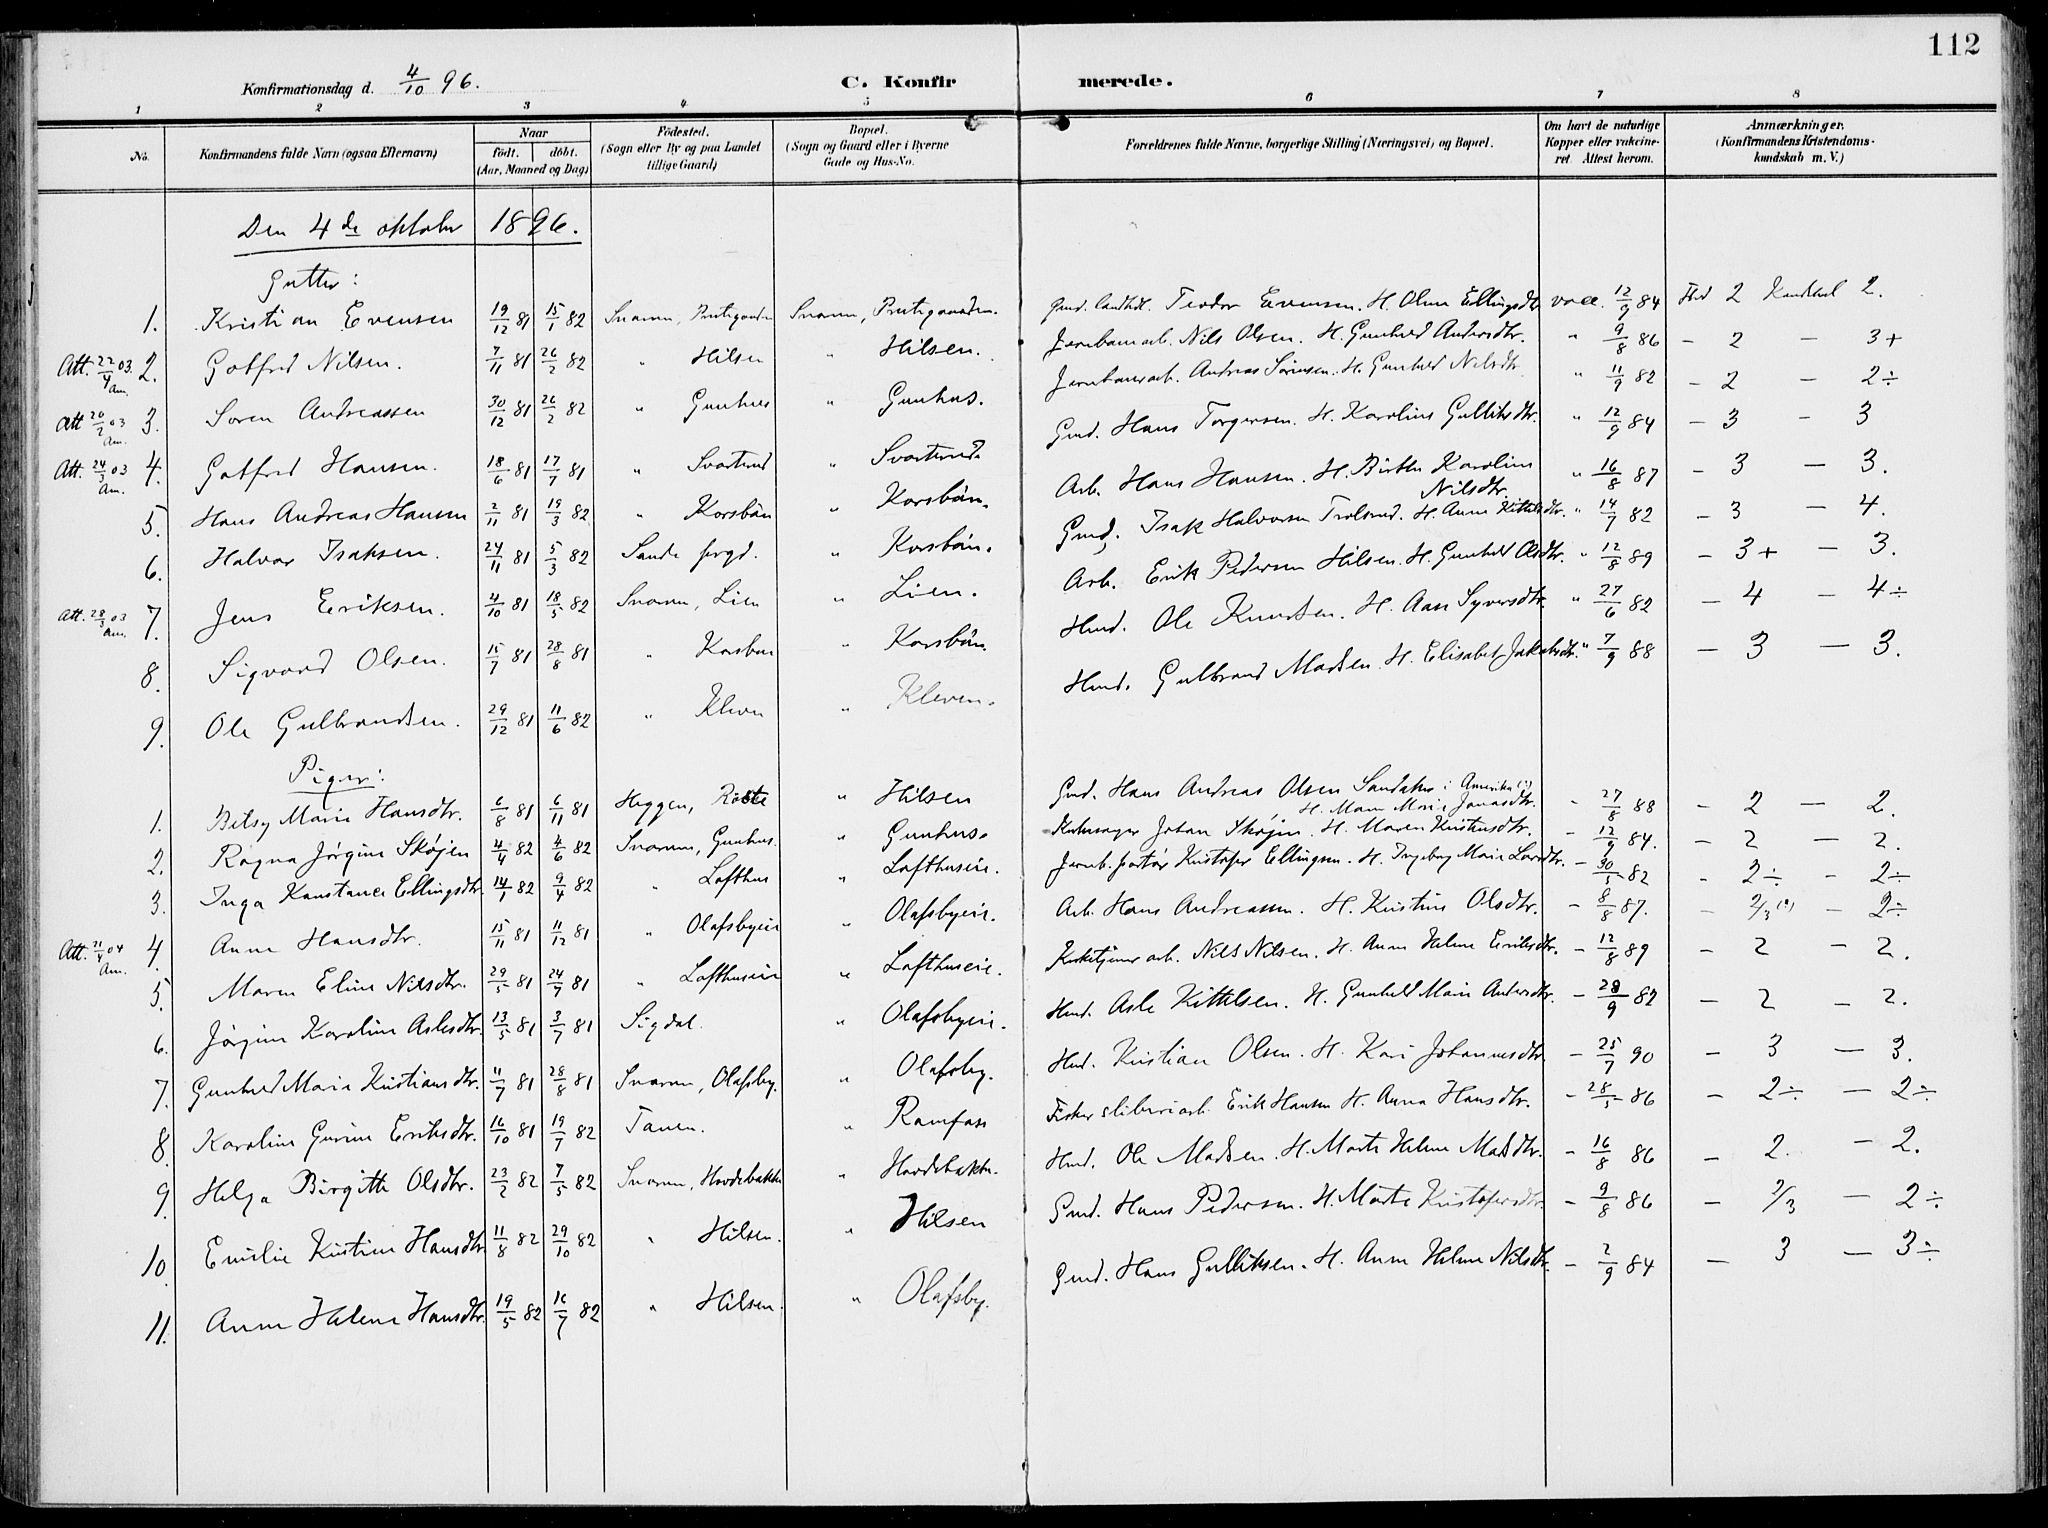 112
Konfirmationsdag d. 4/10 96.
C. Konfirmerede.
1 2 3 4 5 6 7 8
No. Konfirmandens fulde Navn (ogsaa Efternavn) Naar födt. döbt. (Aar, Maaned og Dag) Födested. (Sogn eller By og paa Landet tillige Gaard) Bopæl. (Sogn og Gaard eller i Byerne Gade og Hus-No. Forældrenes fulde Navne, borgerlige Stilling (Næringsvei) og Bopæl. Om havt de naturlige Kopper eller vakcineret Attest herom. Anmærkninger. (Konfirmandens Kristendomskundskab m. V.)
Den 4de oktober 1896.
Gutter:
1. Kristian Evensen 19/12 81 15/1 82 Snarum, Snarum, Teodor Evensen. H. Oline Ellingsdtr. vacc. 12/9 84 Flid 2 Kundskab 2.
Att. 22/4 03. Am. 2. Gotfred Nilsen. 7/11 81 26/2 82 " Hilsen " Hilsen. Jernbanearb. Nils Olsen. H. Gunhild Andersdtr. " 9/8 86 – 2 – 3+
Att 26/2 03 Am. 3. Søren Andreassen 30/12 81 26/2 82 " Gunhus " Gunhus. Jernbanearb. Andreas Sørensen. H. Gunhild Nilsdtr. " 11/9 82 – 2 – 2÷
Att. 24/3 03 Am. 4. Gotfred Hansen. 18/6 81 17/7 81 " " Gmd. Hans Torgersen. H. Karoline Gulliksdtr. " 12/9 84 – 3 – 3
5. Hans Andreas Hansen 2/11 81 19/3 82 " Korsbøn " Korsbøn. Arb. Hans Hansen. H. Birthe Karoline Nilsdtr. " 16/8 87 – 3 – 3.
6. Halvor Isaksen. 24/11 81 5/3 82 Sande prgd. " Korsbøn. Gmd. Isak Halvorsen H. Anne Kittilsdtr. " 14/7 82 – 3 – 4.
Att. 28/3 03 Am. 7. Jens Eriksen. 4/10 81 18/5 82 Snarum, Lien " Lien. Arb. Erik Pedersen Hilsen. H. Gunhild Olsdtr. " 12/8 89 – 3+ – 3.
8. Sigvard Olsen. 15/7 81 28/8 81 " Korsbøn " Korsbøn. Hmd. Ole Knudsen. H. Aase Syversdtr. " 27/6 82 – 4 – 4÷
9. Ole Gulbrandsen. 29/12 81 11/6 82 " Kleven " Kleven. Hmd. Gulbrand Madsen. H. Elisabet Jakobsdtr. " 7/9 88 – 3 – 3.
Piger:
1. Betsy Marie Hansdtr. 6/8 81 6/11 81 Heggen, " Hilsen Gmd. Hans Andreas Olsen i Amerika (:) H. Maren Marie Jonasdtr. – 27/8 88 – 2 – 2.
2. Ragna Jørgine Skøjen 4/4 82 4/6 82 Snarum, Gunhus. " Gunhus. Johan Skøjen. H. Maren Kristensdtr. – 12/9 84. – 2 – 2.
3. Inga Konstance Ellingsdtr. 14/1 82 9/4 82 " Lofthus " Lofthuseie. Jernb. portør Kristofer Ellingsen. H. Ingeborg Marie Larsdtr. – 30/5 82 – 2÷ – 2÷
Att. 21/4 04 Am. 4. Anne Hansdtr. 15/11 81 11/12 81 " Olafsbyeie " Olafsbyeie. Arb. Hans Andreassen. H. Kristine Olsdtr. – 8/8 87. – 2/3 (:) – 2÷
5. Maren Eline Nilsdtr. 29/5 81 24/7 81 " Lofthuseie " Lofthuseie. Nils Nilsen. H. Anne Helene Eriksdtr. – 12/8 89 – 2 – 2.
6. Jørgine Karoline Aslesdtr. 13/5 81 3/7 81 Sigdal. " Olafsbyeie. Hmd. Asle Kittelsen. H. Gunhild Marie Andersdtr. – 28/9 82 – 2 – 2.
7. Gunhild Marie Kristiansdtr. 11/7 81 28/8 81 Snarum, Olafsby. " Olafsby. Hmd. Kristian Olsen. H. Kari Johannesdtr. – 25/7 90 – 3 – 3.
8. Karoline Gurine Eriksdtr. 16/10 81 19/7 82 " Ramfoss Erik Hansen H. Anna Hansdtr. – 28/5 86 – 2÷ – 2÷
9. Helga Birgitte Olsdtr. 23/2 82 7/5 82 Snarum, Hovdebakke " Hovdebakke. Hmd. Ole Madsen. H. Marte Helene Madsdtr. – 16/8 86 – 2. – 2.
10. Emilie Kristine Hansdtr. 11/8 82 29/10 82 " Hilsen. " Hilsen Gmd. Hans Pedersen. H. Marte Kristofersdtr. – 9/8 86 – 2/3 – 2÷
11. Anne Helene Hansdtr. 19/5 82 16/7 82 " Hilsen. " Olafsby. Gmd. Hans Gulliksen. H. Anne Helene Nilsdtr. – 2/9 84 – 3 – 3÷